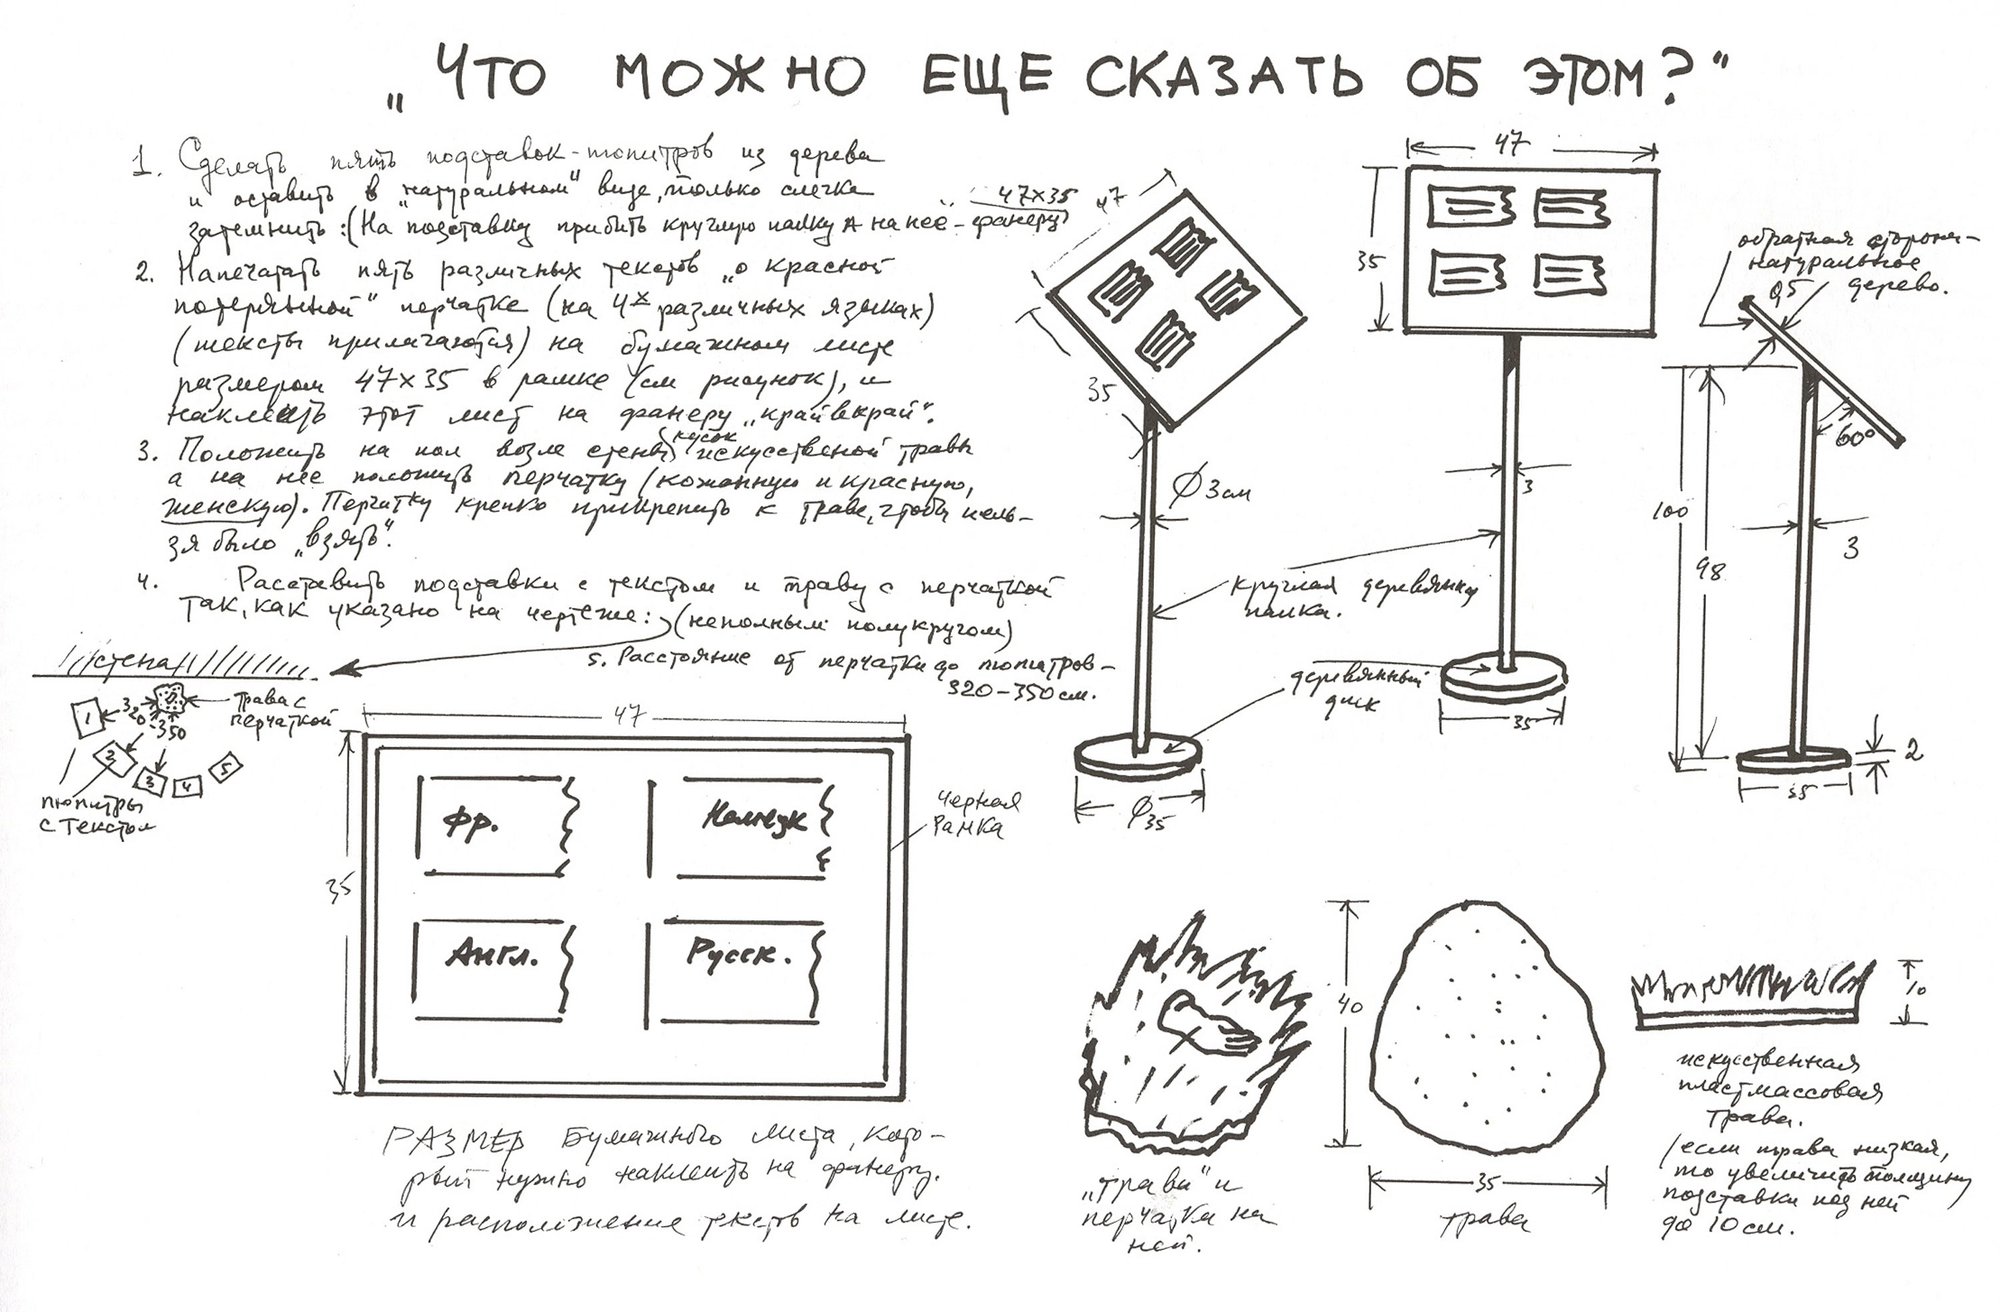 „ЧТО МОЖНО ЕЩЕ СКАЗАТЬ ОБ ЭТОМ?"
1. Сделать пять подставок-пюпитров из дерева
и оставить в „натуральном" виде, только слегка
затемнить: (На подставку прибить круглую палку а на неё - фанеру)
47x35
2. Напечатать пять различных текстов „о красной
потерянной" перчатке (на 4х различных языках)
(тексты прилагаются) на бумажном листе
размером 47x35 в рамке (см рисунок), и
наклеить этот лист на фанеру „край в край".
3. Положить на пол возле стены кусок искусственой травы
а на нее положить перчатку (кожанную и красную,
женскую). Перчатку крепко прикрепить к траве, чтобы нель-
зя было „взять".
4. Расставить подставки с текстом и траву с перчаткой
так, как указано на чертеже: (неполным полукругом)
5. Расстояние от перчатки до пюпитров -
320-350 см.
стена
трава с
перчаткой
320
-350
1
2
3
4
5
пюпитры
с текстом
47
35
Фр.
Немецк
Англ.
Русск.
черная
рамка
РАЗМЕР бумажного листа, кото-
рый нужно наклеить на фанеру.
и расположение текстов на листе.
47
35
Ф 3 см
Ф 35
47
35
3
круглая деревянная
палка.
деревянный
диск
35
обратная сторона -
натуральное
дерево.
0,5
60°
100
98
3
2
35
„трава" и
перчатка на
ней.
40
35
трава
10
искусственная
пластмассовая
трава.
(если трава низкая,
то увеличить толщину
подставки под ней
до 10 см.